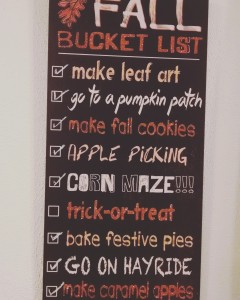 FALL
BUCKET LIST
make leaf art
go to a pumpkin patch
make fall cookies
APPLE PiCKiNG
CORN MAZE!!!
trick-or-treat
bake festive pies
GO ON HAYRIDE
make caramel apples